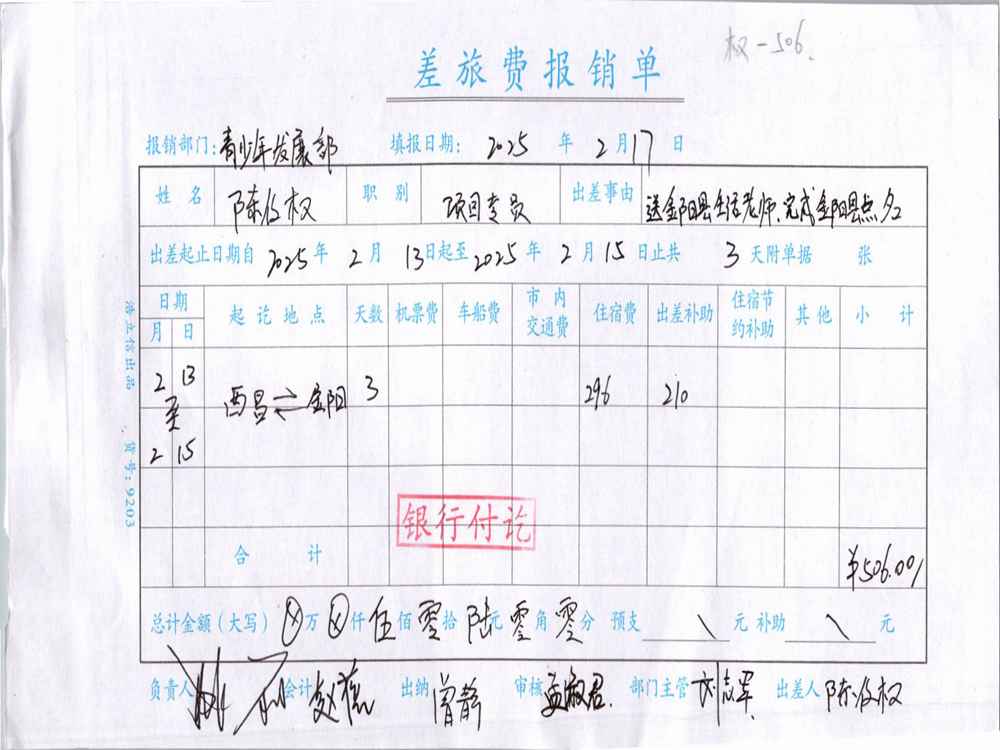 权-506.
差旅费报销单
报销部门:青少年发展部 填报日期: 2025 年 2 月 17 日
姓名 陈俊权 职别 项目专员 出差事由 送金阳县生活老师、完成金阳县点名
出差起止日期自 2025 年 2 月 13 日起至 2025 年 2 月 15 日止共 3 天附单据 张
日期 起讫地点 天数 机票费 车船费 市内交通费 住宿费 出差补助 住宿节约补助 其他 小计
月 日
2 13 至 2 15 西昌⇌金阳 3 296 210
银行付讫
合计 ¥506.00
总计金额(大写) ⊗万 ⊗仟 伍佰 零拾 陆元 零角 零分 预支 \ 元 补助 \ 元
负责人 会计 赵 出纳 曾静 审核 孟淑君 部门主管 刘志军 出差人 陈俊权
浩立信出品 货号:9203